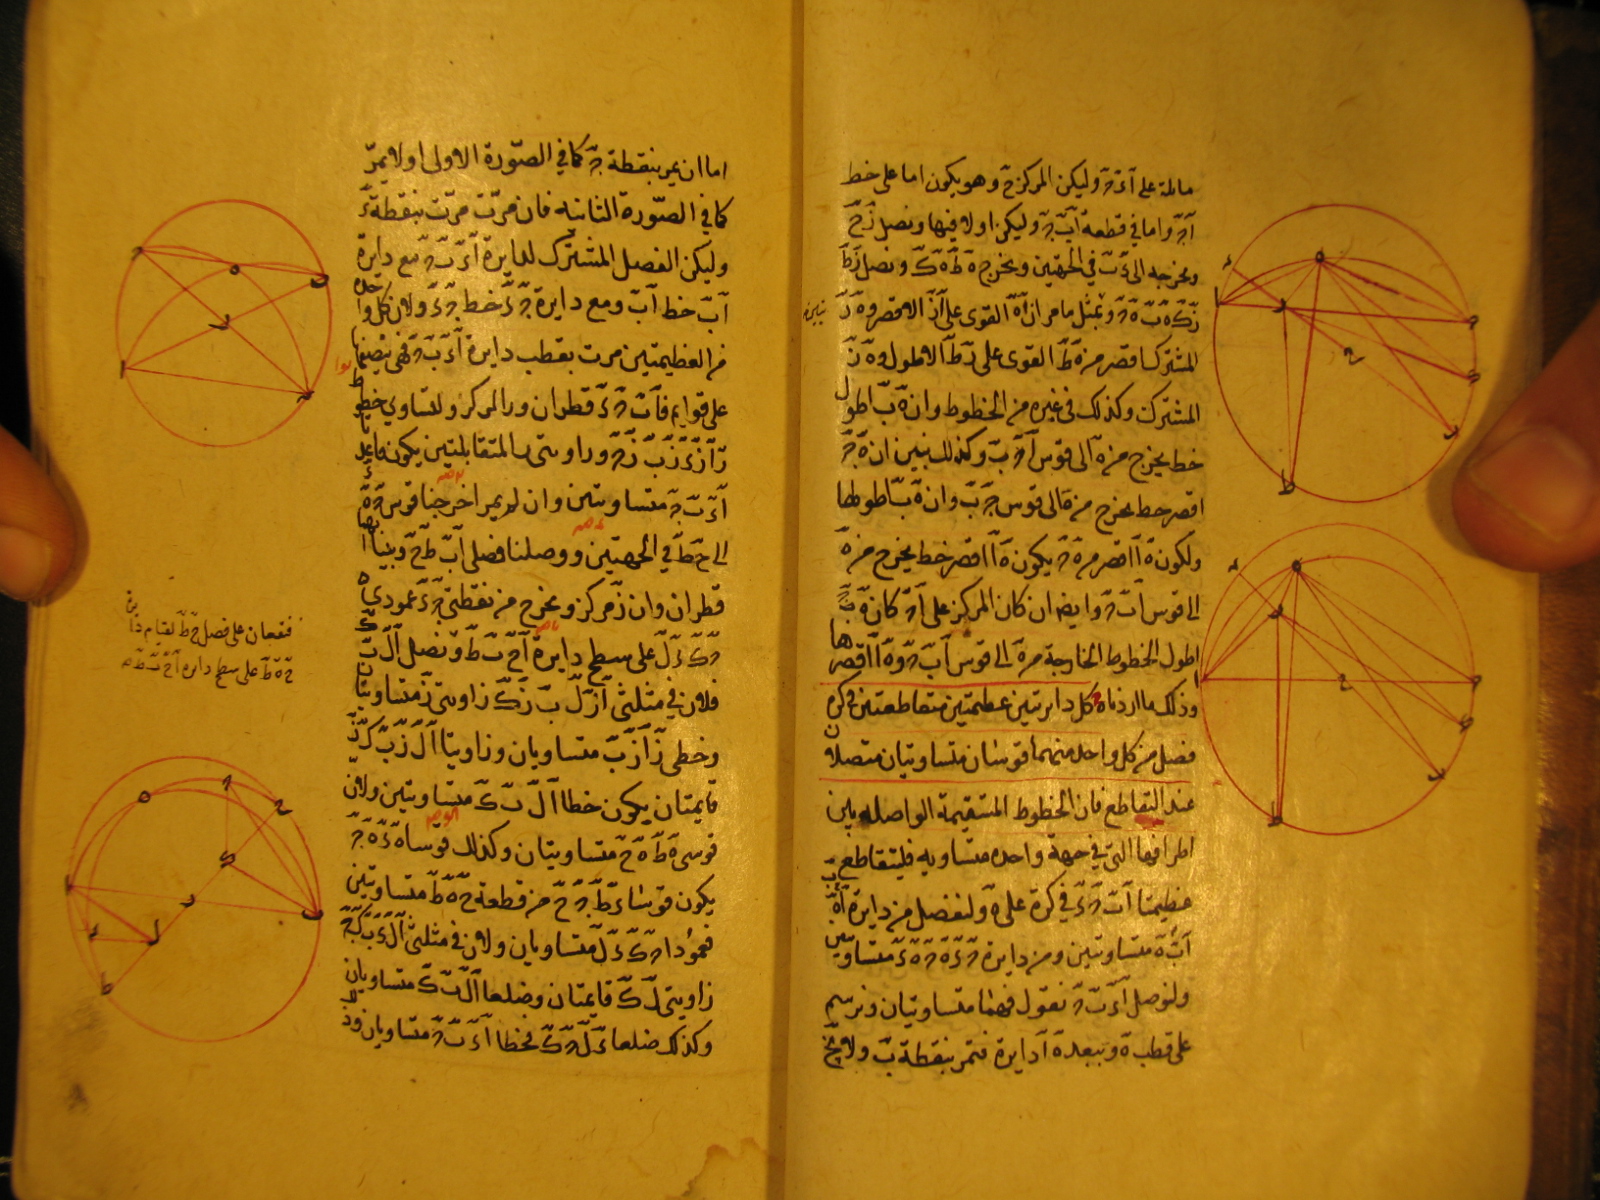 مائلة على آ ءَ حَ وليكن المركز ح وهو يكون اما على خط
آحَ واما في قطعة آبَ حَ وليكن اولا فيها ونصل زَحَ
ونخرجه الى ءَ بَ في الجهتين ونخرج هَ طَ هَ كَ ونصل زَطَ
زَكَ هَ بَ هَ حَ وبمثل ما مر ان هَ آ القوى على آزَ الاقصر و هَ زَ
المشترك اقصر من هَ طَ القوى على زَطَ الاطول و هَ زَ
المشترك وكذلك في غيره من الخطوط وان هَ بَ اطول
خط يخرج من هَ الى قوس آحَ بَ وكذلك نبين ان هَ حَ
اقصر خط يخرج من هَ الى قوس حَ بَ وان هَ بَ اطولها
ولكون هَ آ اقصر من هَ حَ يكون هَ آ اقصر خط يخرج من هَ
الى قوس آبَ حَ وايضا ان كان المركز على آحَ كان هَ حَ
اطول الخطوط الخارجة من هَ الى قوس آبَ حَ و هَ آ اقصرها
وذلك ما اردناه كل دايرتين عظيمتين متقاطعتين في كرة
فصل من كل واحده منهما قوسان متساويتان متصلان
عند التقاطع فان الخطوط المستقيمة الواصله بين
اطرافها التي في جهة واحده متساويه فليتقاطع
عظيمتا آبَ حَ ءَ في كرة على هَ ولنفصل من دايرة آبَ
آهَ بَ هَ متساويتين ومن دايرة حَ ءَ حَ هَ هَ ءَ متساويتين
ولنوصل آ ءَ بَ حَ نقول فهما متساويتان ونرسم
على قطب هَ وببعد هَ آ دايرة فتمر بنقطة بَ ولا يخ
اما ان يمر بنقطة حَ كما في الصّورة الاولى او لا يمرّ
كما في الصّورة الثانيه فان مرّت مرّت بنقطة ءَ
وليكن الفصل المشترك لدايرة آ ءَ بَ حَ مع دايرة
آبَ خط آبَ ومع دايرة حَ ءَ خط حَ ءَ ولان كل واحده
من العظيمتين مرت بقطب دايرة آ ءَ بَ حَ فهي ينصفها
على قوايم فآبَ حَ ءَ قطران و ز المركز ولتساوي خطوط
زَآ زَءَ زَبَ زَحَ وزاويتى ز المتقابلتين يكون قاعدتا
آ ءَ بَ حَ متساويتين وان لم يمر اخرجنا قوس حَ هَ ءَ
الى حَ طَ في الجهتين ووصلنا فصلى آبَ طَ حَ وبينا انهما
قطران وان زَ مركز ونخرج من نقطتى حَ ءَ عمودى
حَ كَ ءَ لَ على سطح دايرة آحَ بَ طَ ونصل آلَ بَ كَ
فلان في مثلثى آزَلَ بَ زَكَ زاويتى زَ متساويتان
وخطى زَآ زَبَ متساويان وزاويتا
قايمتان يكون خطا آلَ بَ كَ متساويتين ولان
قوسى هَ طَ هَ حَ متساويتان وكذلك قوسا هَ ءَ هَ حَ
يكون قوسا ءَ طَ حَ حَ من قطعة حَ هَ طَ متساويتين
فعمودا حَ كَ ءَ لَ متساويان ولان في مثلثى آلَ ءَ بَ كَ حَ
زاويتى لَ كَ قايمتان وضلعا آلَ بَ كَ متساويان
وكذلك ضلعا ءَ لَ حَ كَ فخطا آ ءَ بَ حَ متساويان وذ
فيقعان على فصل حَ طَ لقيام دايرة
حَ هَ طَ على سطح دايره آحَ بَ طَ